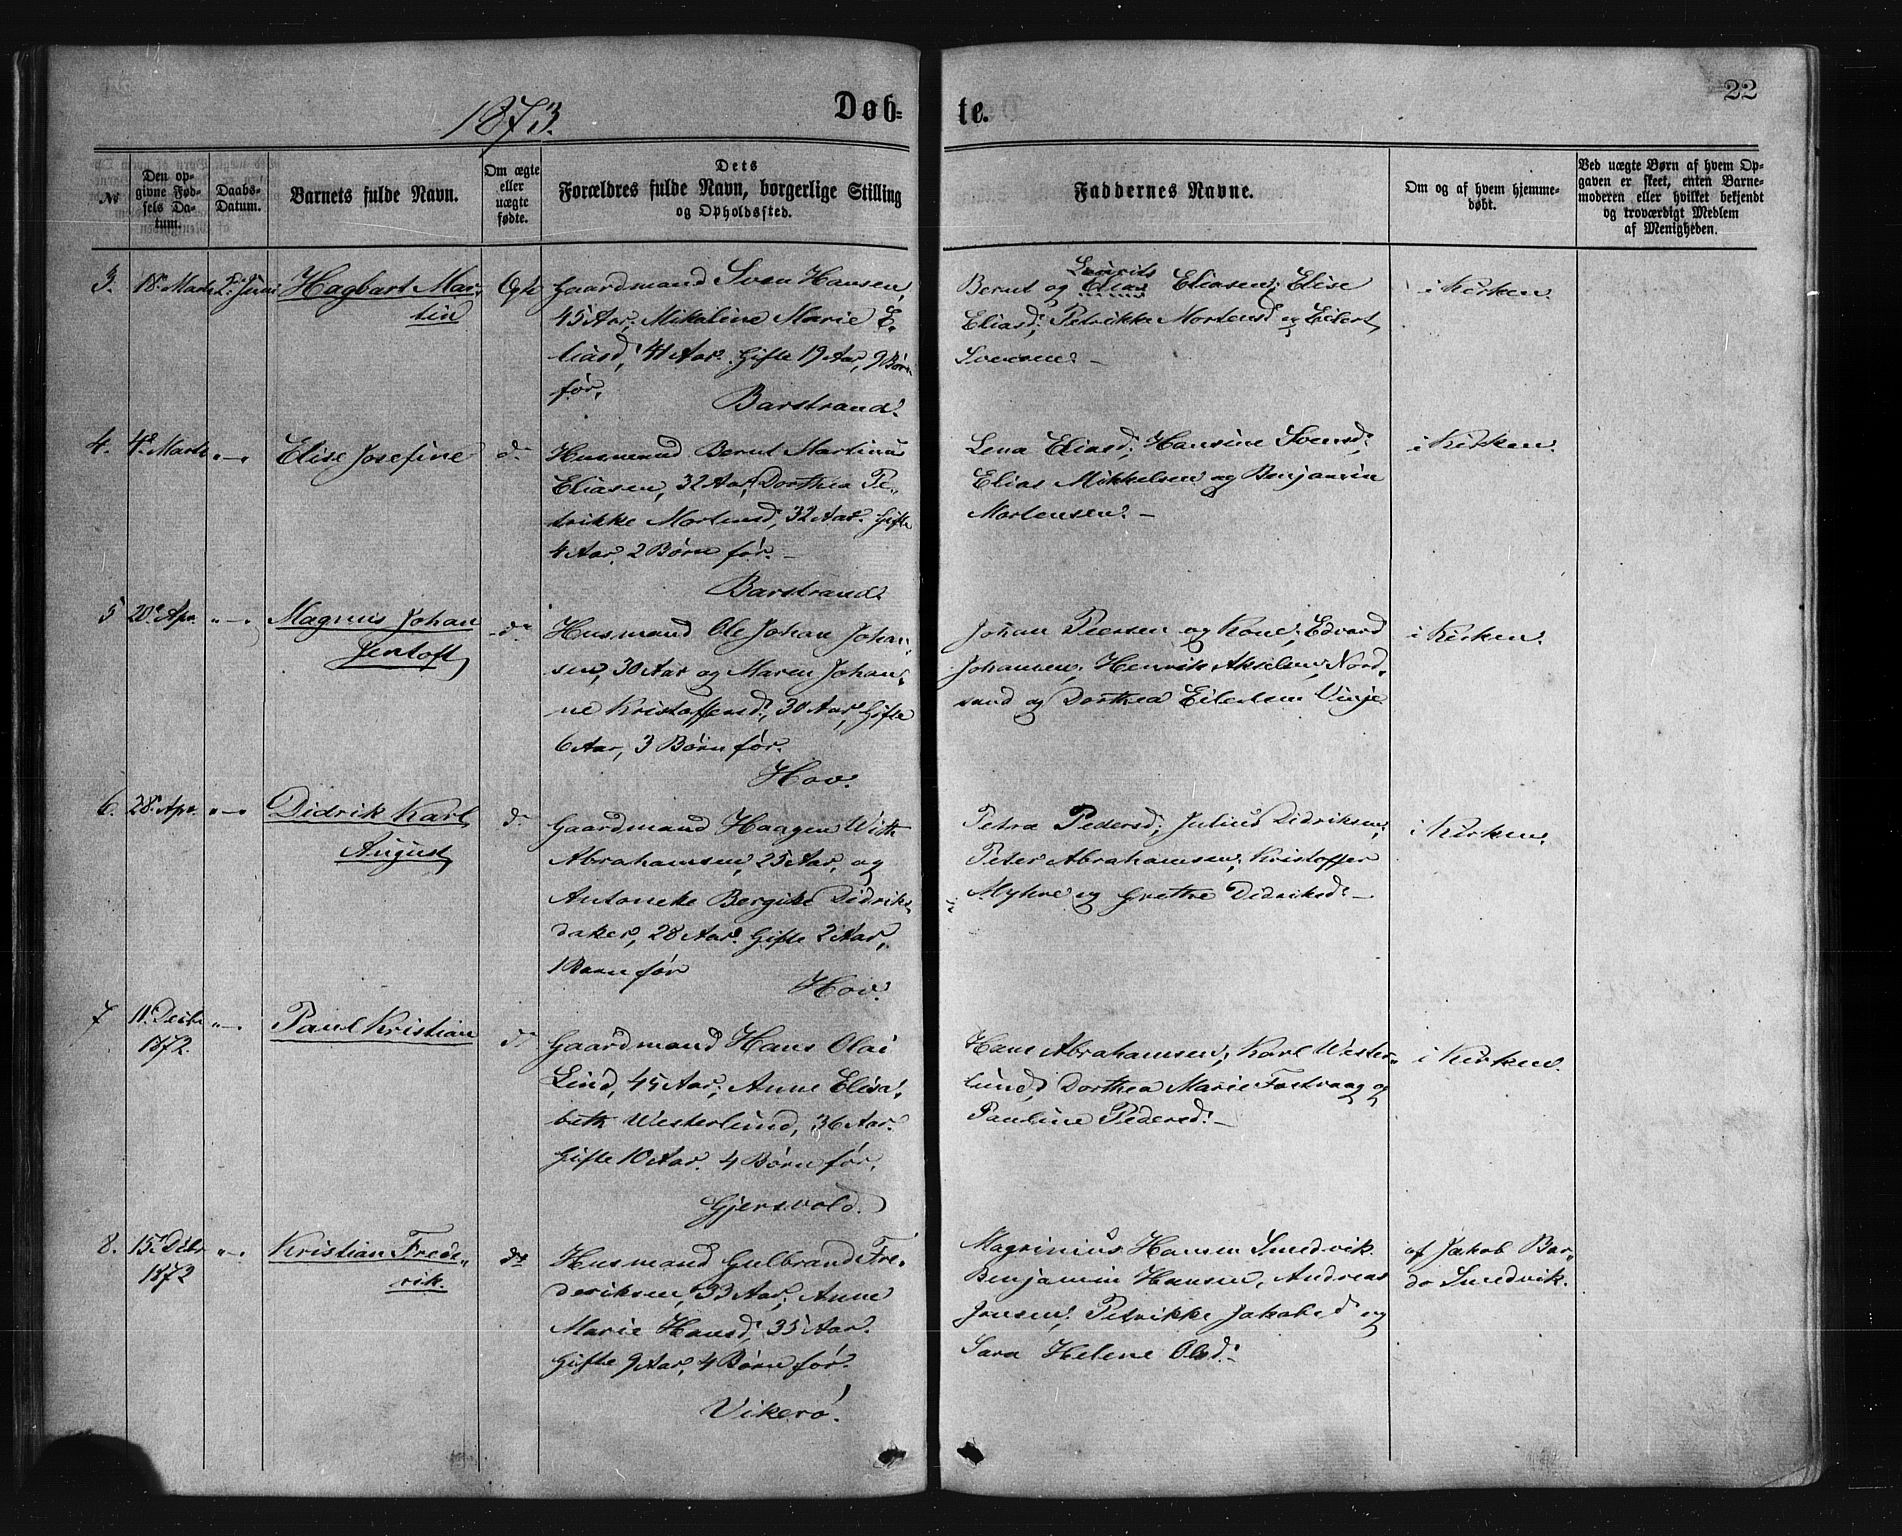 22
1873.
Døb-
te.
№
Den op-
givne Fød-
sels Da-
tum.
Daabs-
Datum.
Barnets fulde Navn.
Om ægte
eller
uægte
fødte.
Dets
Forældres fulde Navn, borgerlige Stilling
og Opholdssted.
Faddernes Navne.
Om og af hvem hjemme-
døbt.
Ved uægte Børn af hvem Op-
gaven er skeet, enten Barne-
moderen eller hvilket bekjendt
og troværdigt Medlem
af Menigheden.
3.
18. Marts
2. Juni
Hagbart Mar-
tin
Ægte
Gaardmand Sven Hansen,
45 Aar, Mikaline Marie E-
liasd, 41 Aar. Gifte 19 Aar, 9 Børn
før.
Barstrand.
Laurits
Bernt og Elias Eliasen, Elise
Eliasd, Petrikke Mortensd og Eilert
Svensen. -
i Kirken.
4.
4. Marts
"-"
Elise Josefine
do
Husmand Bernt Martinus
Eliasen, 32 Aar, Dorthea Pe-
trikke Mortensd, 32 Aar. Gifte
4 Aar, 2 Børn før. -
Barstrand.
Lena Eliasd, Hansine Svensd,
Elias Mikkelsen og Benjamin
Mortensen. -
i Kirken.
5
20. Apr.
"-"
Magnus Johan
Jentoft
do
Husmand Ole Johan Johan-
sen, 30 Aar og Maren Johan-
ne Kristoffersd, 30 Aar, Gifte
6 Aar, 3 Børn før.
Hov.
Johan Peersen og Kone, Edvard
Johansen, Henrik Akselsen Nord-
sand og Dorthea Eilertsen Vinje
i Kirken.
6.
28. Apr.
"-"
Didrik Karl
August
do
Gaardmand Haagen With
Abrahamsen, 25 Aar, og
Antoneke Bergite Didriks-
daker, 28 Aar. Gifte 2 Aar,
1 Barn før
Hov.
Petra Pedersd, Julius Didriksen,
Peter Abrahamsen, Kristoffer
Myhre og Grethe Didriksd. -
i Kirken.
7
11. Decbr
1872.
"-"
Paul Kristian
do
Gaardmand Hans Olai
Lind, 45 Aar, Anne Elisa-
beth Westerlund, 36 Aar.
Gifte 10 Aar. 4 Børn før.
Gjersvold.
Hans Abrahamsen, Karl Wester-
lund, Dorthea Marie Fastvaag og
Pauline Pedersd. -
i Kirken.
8.
15. Dcbr
1872
"-"
Kristian Frede-
rik.
do
Husmand Gulbrand Fre-
deriksen, 33 Aar, Anne
Marie Hansd, 35 Aar.
Gifte 9 Aar, 4 Børn før.
Vikerø.
Magrinius Hansen Smedvik.
Benjamin Hansen, Andreas
Jensen, Petrikke Jakobsd og
Sara Helene Olsd. -
af Jakob Bar-
do Smedvik.